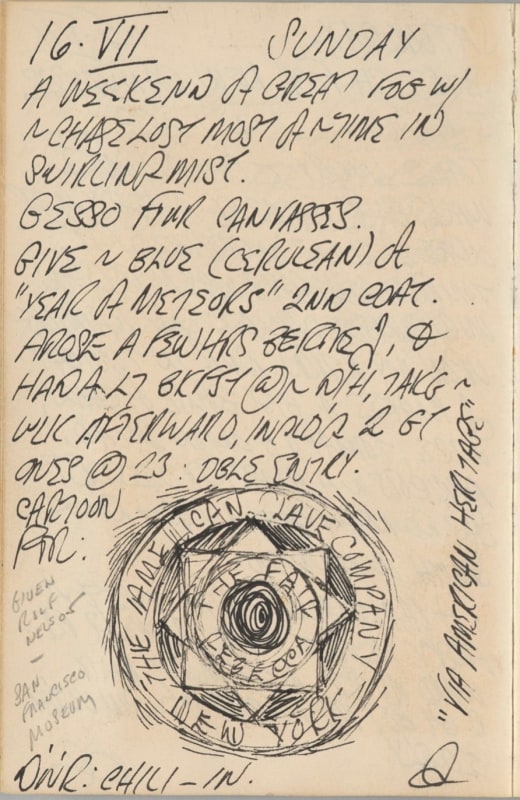 16·VII SUNDAY
A WEEKEND of GREAT FOG W/
~ CHASE LOST MOST of ~ TIME IN
SWIRLING MIST.
GESSO FOUR CANVASSES.
GIVE ~ BLUE (CERULEAN) of
"YEAR of METEORS" 2ND COAT.
AROSE A FEW HRS BEFORE 1, &
HAD A LT BKFST @ ~ D/H, TAK'G ~
WLK AFTERWARD, 2 GT
ONES @ 23. DBLE ENTRY.
CARTOON
FOR:
THE AMERICAN SLAVE COMPANY
NEW YORK
THE FAIR
REBECCA
"VIA AMERICAN HERITAGE"
GIVEN
ROLF
NELSON
—
SAN
FRANCISCO
MUSEUM
DIN'R: CHILI–IN.